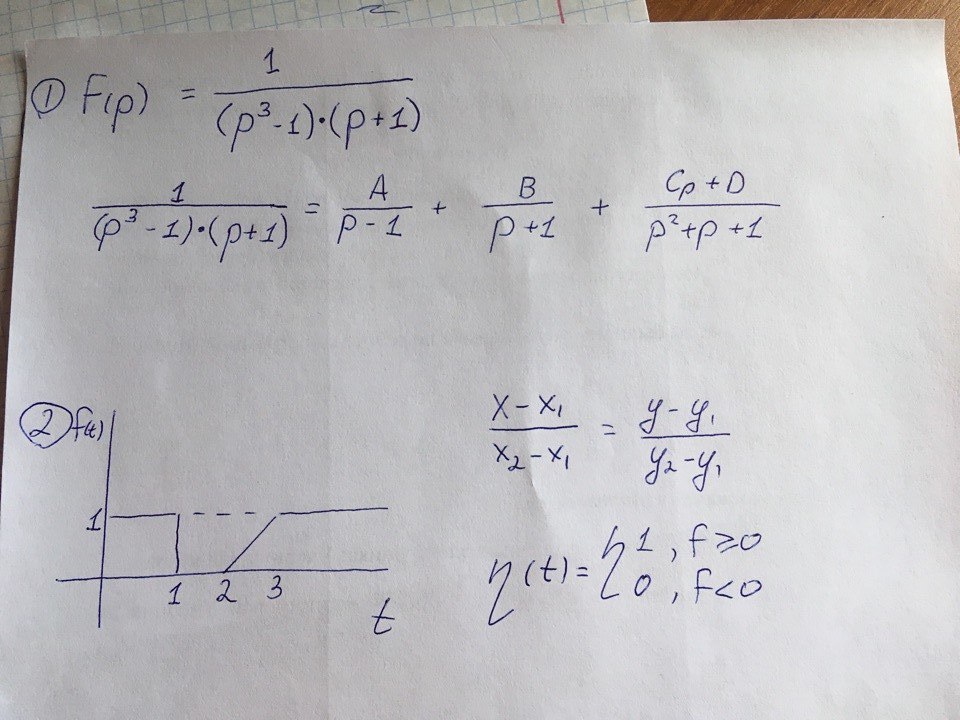 ① F(p) = 1 / ((p³-1)·(p+1))
1 / ((p³-1)·(p+1)) = A / (p-1) + B / (p+1) + (Cp+D) / (p²+p+1)
② f(t)
1
1 2 3
t
(x-x₁) / (x₂-x₁) = (y-y₁) / (y₂-y₁)
η(t) = { 1, f≥0
0, f<0